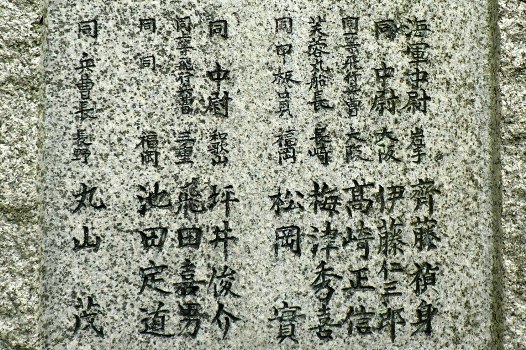 海軍中尉 岩手 齊藤禎身
同 中尉 大阪 伊藤仁三郎
同 飛行兵曹 大阪 高崎正信
長 長崎 梅津秀喜
同 甲板員 福岡 松岡實
同 中尉 和歌山 坪井俊介
同 飛行兵曹 三重 飛田嘉男
同 同 福岡 池田定道
同 兵曹長 長野 丸山茂